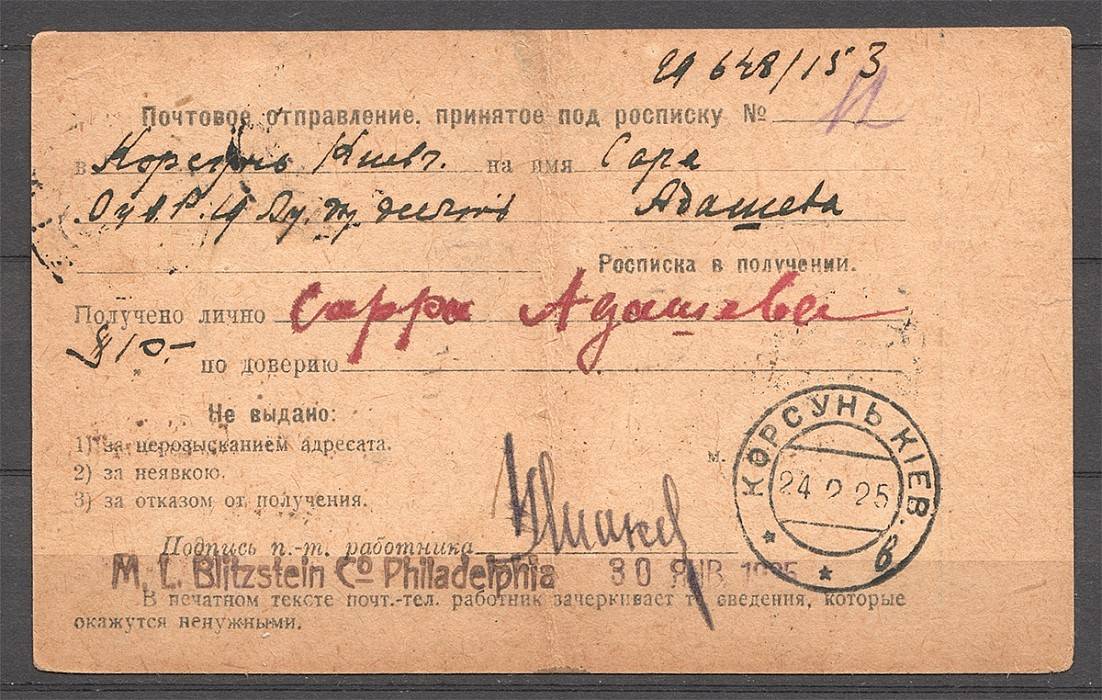 29 648/153
Почтовое отправление, принятое под росписку №
в Корсунь Киев. на имя Сора
Адашева
Росписка в получении.
Получено лично Сарра Адашева
$10.-
по доверию
Не выдано:
1) за нерозысканием адресата.
2) за неявкою.
3) за отказом от получения.
м.
КОРСУНЬ КІЕВ. в
24 2 25
Подпись п.-т. работника
M. L. Blitzstein Co Philadelphia 30 ЯНВ. 1925
В печатном тексте почт.-тел. работник зачеркивает те сведения, которые
окажутся ненужными.